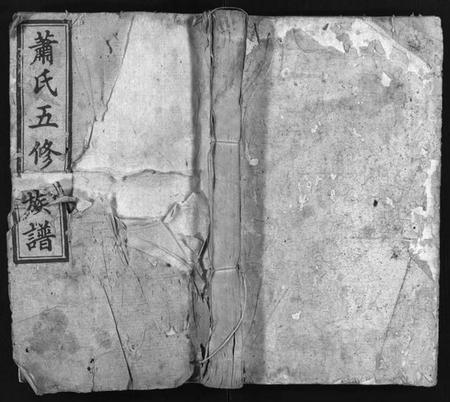 蕭氏五修族譜